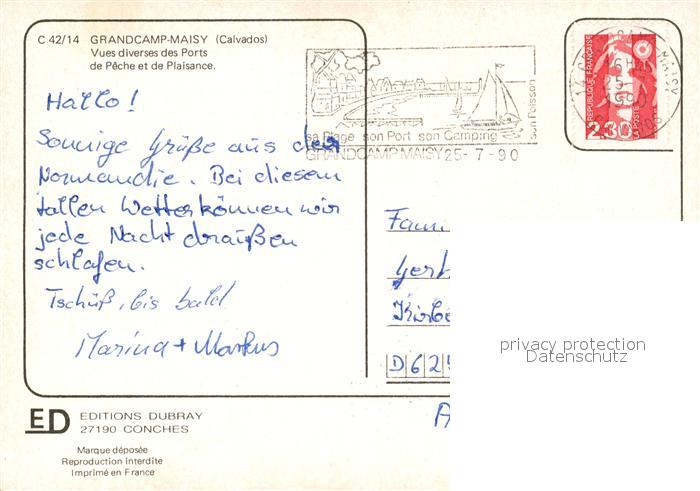 C 42/14 GRANDCAMP-MAISY (Calvados)
Vues diverses des Ports
de Pêche et de Plaisance.
Hallo!
Sonnige Grüße aus der
Normandie. Bei diesem
tollen Wetter können wir
jede Nacht draußen
schlafen.
Tschüß, bis bald
Marina + Markus
sa Plage son Port son Camping
son Poisson
GRANDCAMP-MAISY 25-7-90
REPUBLIQUE FRANÇAISE
2.30
LA POSTE
MAISY
Fam
D 6 2
privacy protection
Datenschutz
A
ED EDITIONS DUBRAY
27190 CONCHES
Marque déposée
Reproduction interdite
Imprimé en France